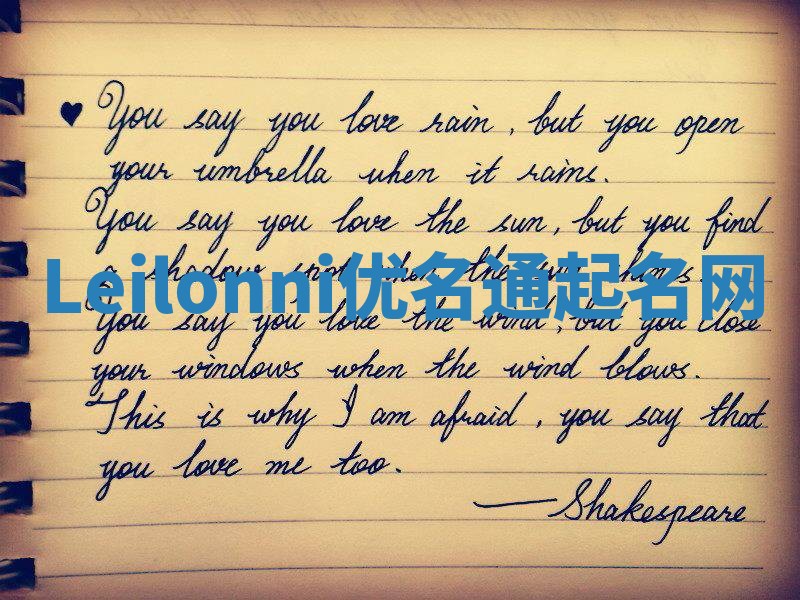 ♥ You say you love rain, but you open
your umbrella when it rains.
You say you love the sun, but you find
a shadow spot when the sun shines.
Leilonni优名通起名网
You say you love the wind, but you close
your windows when the wind blows.
This is why I am afraid, you say that
you love me too.
—Shakespeare